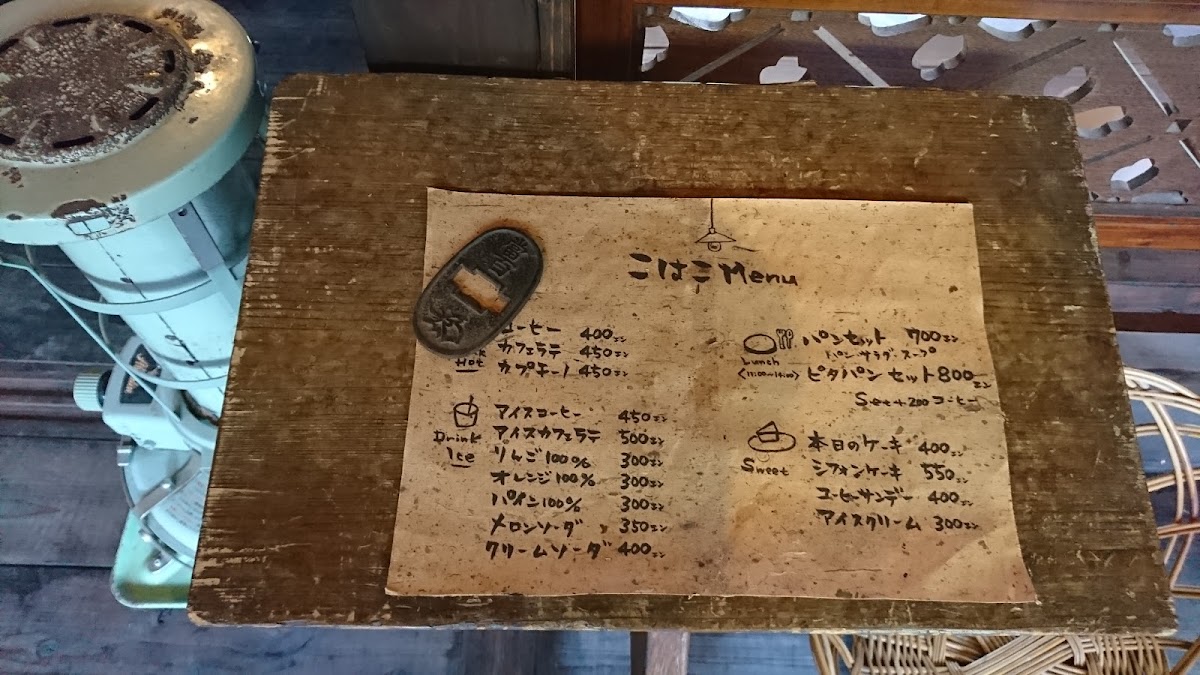 こはこ Menu
コーヒー 400エン
カフェラテ 450エン
Hot
カプチーノ 450エン
アイスコーヒー 450エン
Drink
アイスカフェラテ 500エン
Ice
りんご100% 300エン
オレンジ100% 300エン
パイン100% 300エン
メロンソーダ 350エン
クリームソーダ 400エン
パンセット 700エン
パン・サラダ・スープ
Lunch
ピタパンセット 800エン
Set+200コーヒー
本日のケーキ 400エン
Sweet
シフォンケーキ 550エン
コーヒーサンデー 400エン
アイスクリーム 300エン